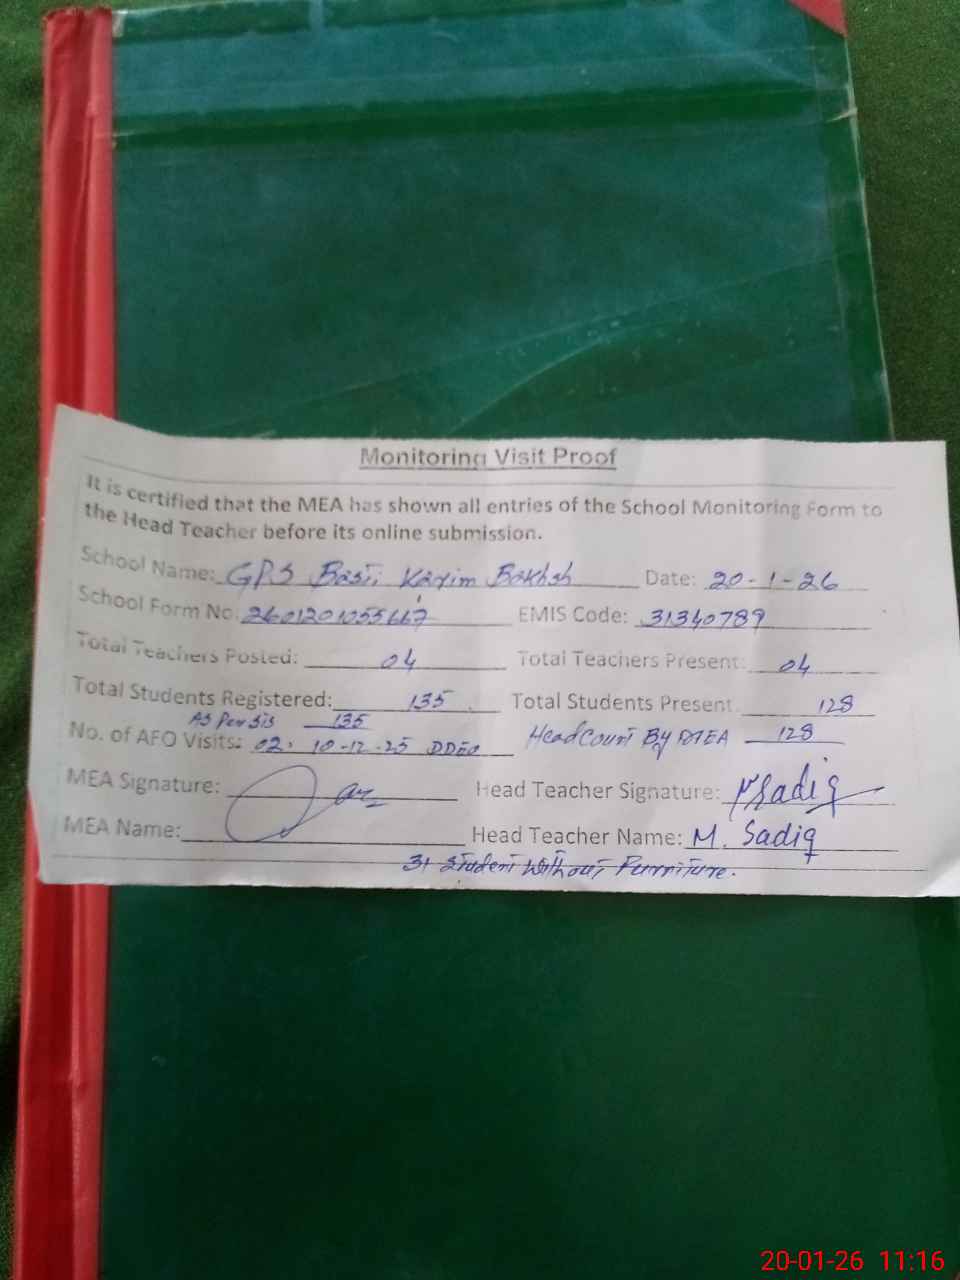 Monitoring Visit Proof
It is certified that the MEA has shown all entries of the School Monitoring Form to
the Head Teacher before its online submission.
School Name: GPS Basti Karim Bakhsh Date: 20-1-26
School Form No. 2601201055667 EMIS Code: 31340789
Total Teachers Posted: 04 Total Teachers Present: 04
Total Students Registered: 135 Total Students Present 128
As Per Sis 135
No. of AFO Visits: 02. 10-12-25 DDEO HeadCount By MEA 128
MEA Signature: Head Teacher Signature: MSadiq
MEA Name: Head Teacher Name: M. Sadiq
31 Student Without Furniture.
20-01-26 11:16